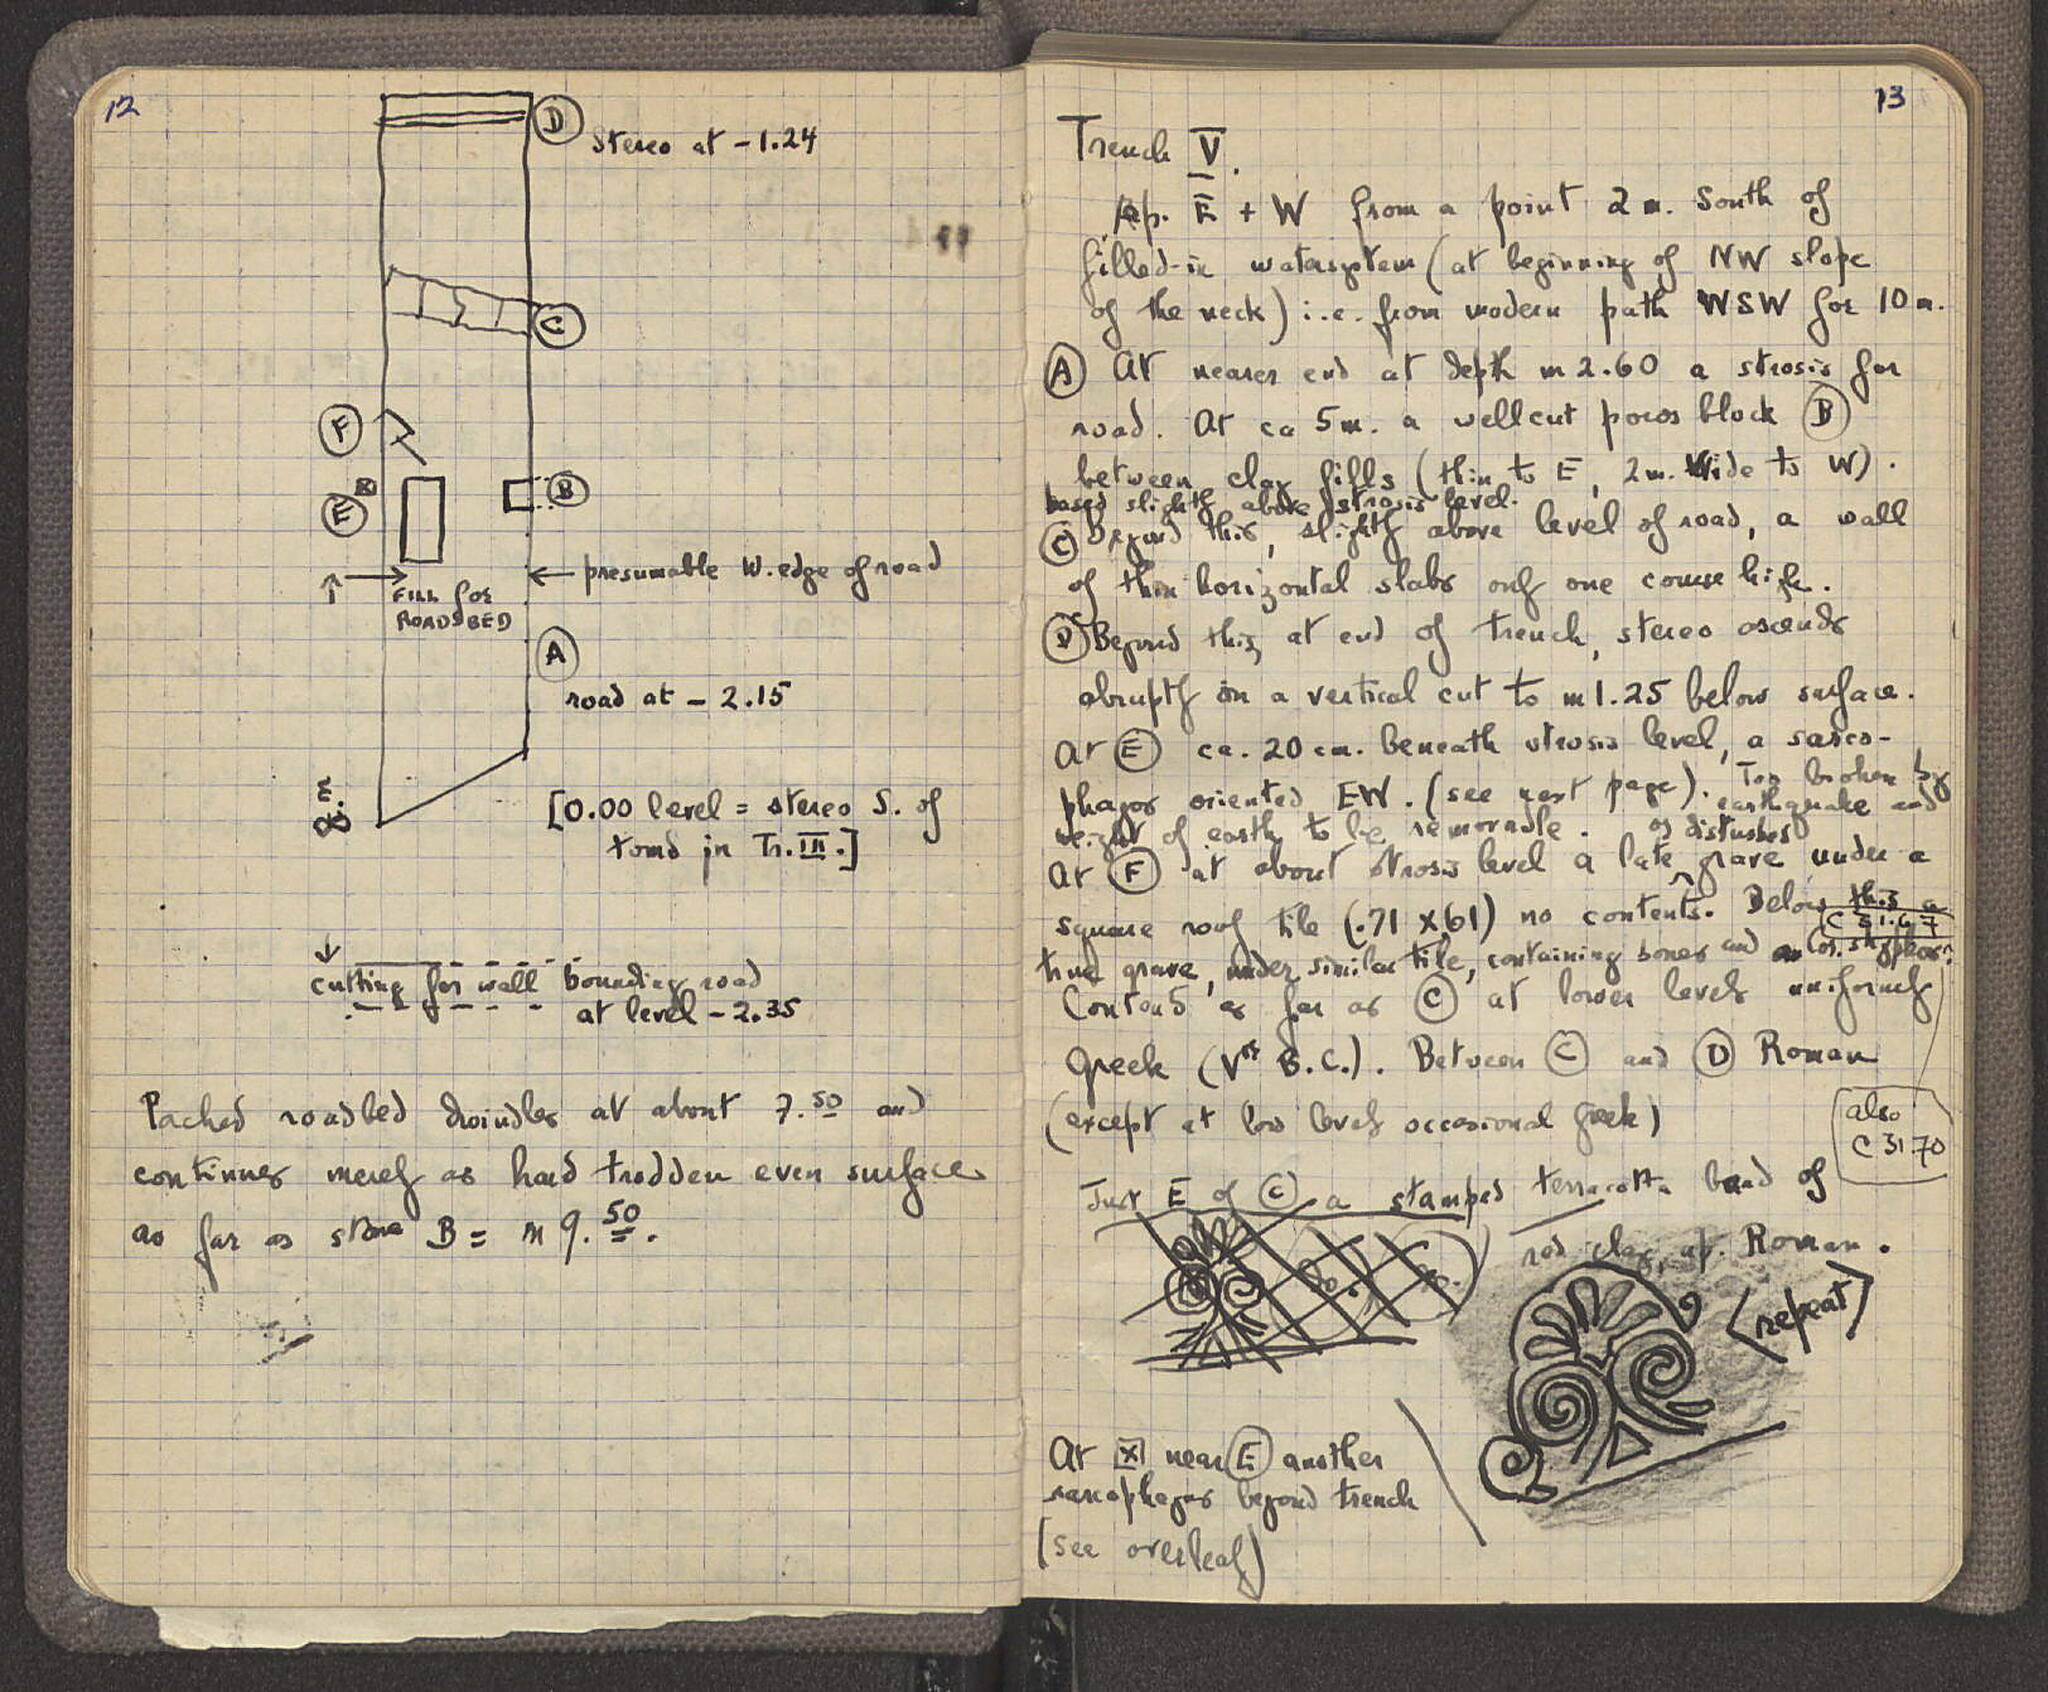 12
D
stereo at - 1.24
C
F
E
X
B
presumable W. edge of road
FILL for
ROADBED
A
road at - 2.15
8.m
[0.00 level = stereo S. of
tomb in Tr. III.]
cutting for wall bounding road
at level - 2.35
Packed roadbed dwindles at about 7.50 and
continues merely as hard trodden even surface
as far as stone B = m 9.50.
13
Trench V.
E + W from a point 2 m. South of
filled-in watersystem (at beginning of NW slope
of the neck) i.e. from modern path WSW for 10 m.
A At nearer end at depth m 2.60 a strosis for
road. At ca 5 m. a wellcut poros block B
between clay fills (thin to E, 2 m. Wide to W).
based slightly above strosis level.
C Beyond this, slightly above level of road, a wall
of thin horizontal slabs only one course high.
D Beyond this, at end of trench, stereo ascends
abruptly in a vertical cut to m 1.25 below surface.
At E ca. 20 cm. beneath strosis level, a sarco-
phagos oriented EW. (see next page). Top broken by
earthquake and
weight of earth to be removable. or disturbed
At F at about strosis level a late grave under a
square roof tile (.71 x .61) no contents. Below this a
C 31.67
true grave, under similar tile, containing bones and Cor. skyphos.
Contents as far as C at lower levels uniformly
Greek (Vth B.C.). Between C and D Roman
(except at low levels occasional Greek)
also
C 31 70
Just E of C a stamped terracotta band of
red clay, Roman.
<repeat>
At X near E another
sarcophagus beyond trench
(see overleaf)